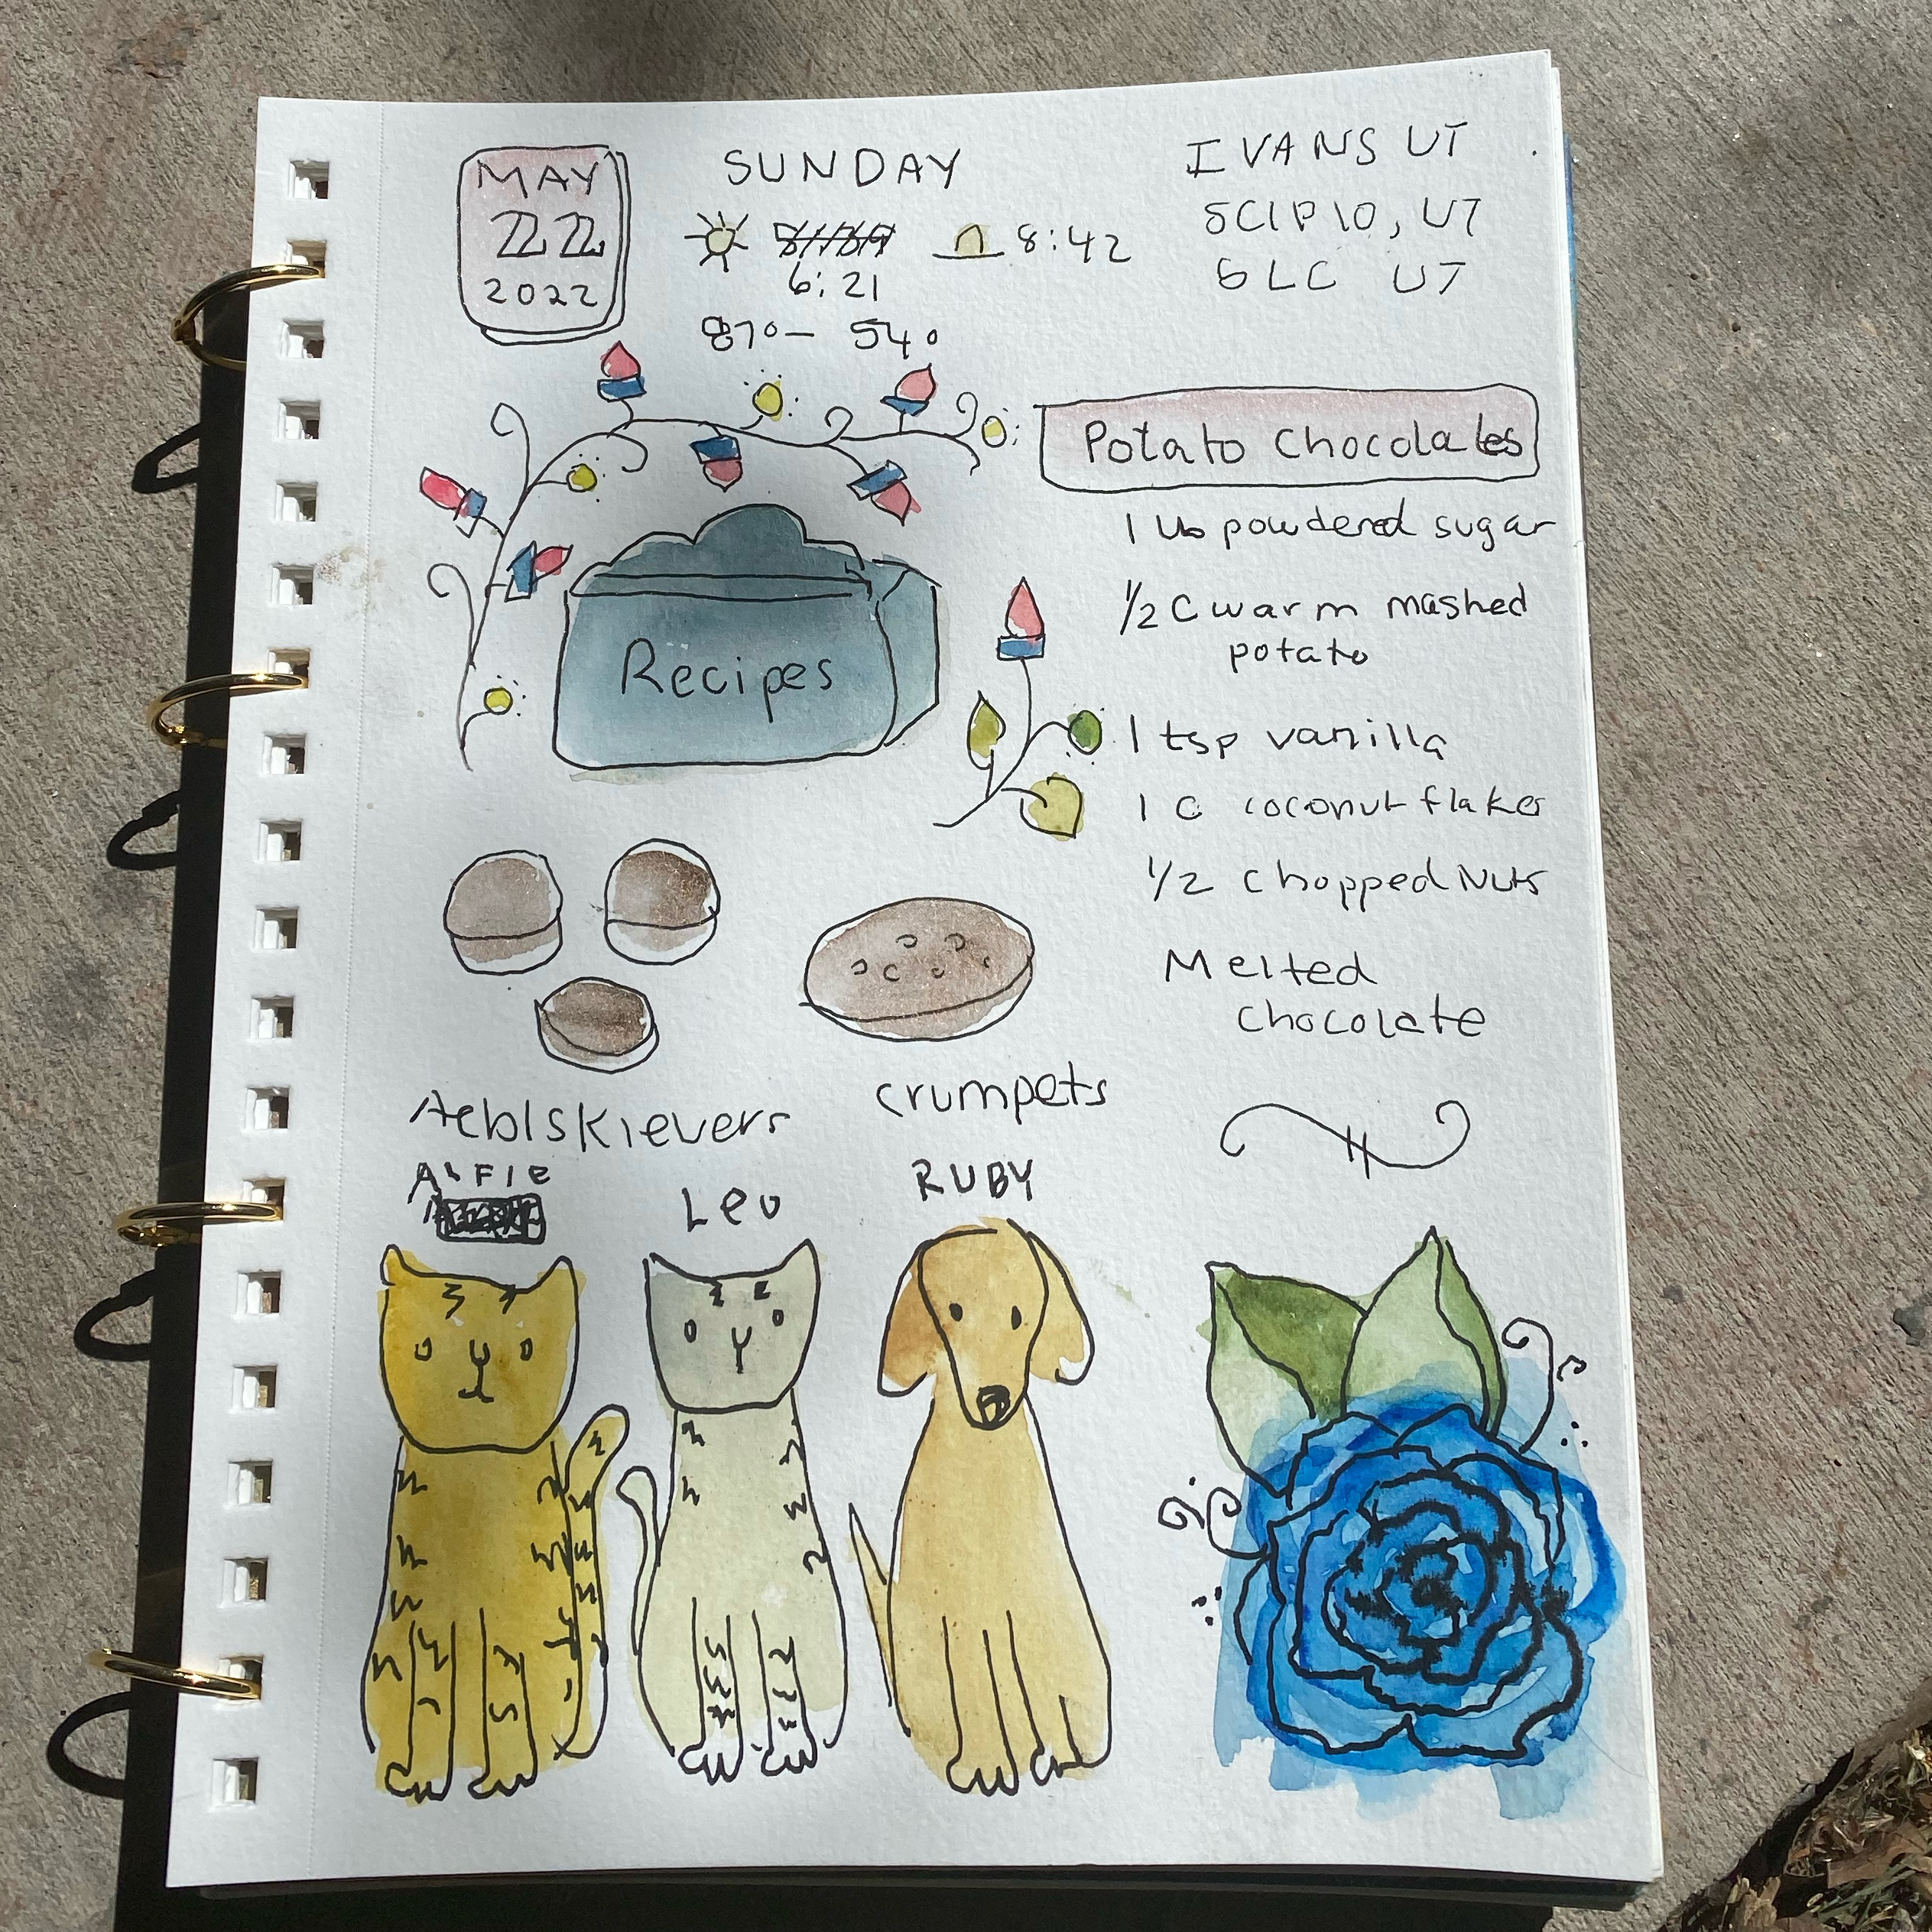 MAY
22
2022
SUNDAY
6:21
8:42
87°- 54°
IVANS UT
SCIPIO, UT
SLC UT
Potato Chocolates
1 lb powdered sugar
1/2 C warm mashed
potato
1 tsp vanilla
1 C coconut flakes
1/2 chopped Nuts
Melted
chocolate
Recipes
Aeblskievers
crumpets
ALFIE
Leo
RUBY